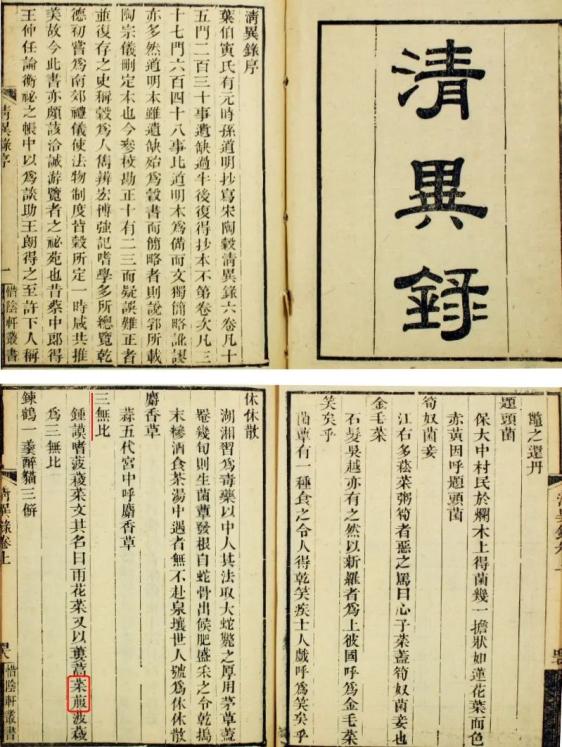 清異錄
清異錄序
葉伯寅氏有元時孫道明抄寫宋陶穀清異錄六卷凡十
五門二百三十事遺缺過半後復得抄本不第卷次凡三
十七門六百四十八事比道明本為備而文獨簡略訛謬
亦多然道明本雖遺缺始為穀書而簡略者則說郛所載
陶宗儀刪定本也今參校勘正十有二三而疑誤難正者
並復存之史稱穀為人雋辨宏博強記嗜學多所總覽乾
德初嘗為南郊禮儀使法物制度皆穀所定一時咸共推
美故今此書亦頗該洽誠游覽者之祕苑也昔蔡中郎得
王仲任論衡祕之帳中以為談助王朗得之至許下人稱
清異錄序
一
惜陰軒叢書
鼈之還丹
題頭菌
保大中村民於爛木上得菌幾一擔狀如蓮花葉而色
赤黃因呼題頭菌
筍奴菌妾
江右多菘菜粥筍者惡之罵曰心子菜蓋筍奴菌妾也
金毛菜
石髮吳越亦有之然以新羅者為上彼國呼為金毛菜
笑矣乎
菌蕈有一種食之令人得乾笑疾士人戲呼為笑矣乎
休休散
湖湘習為毒藥以中人其法取大蛇斃之厚用茅草蓋
罨幾旬則生菌蕈發根自蛇骨出候肥盛采之令乾搗
末糝酒食茶湯中遇者無不赴泉壤世人號為休休散
麝香草
蒜五代宮中呼麝香草
三無比
鍾謨嗜菠薐菜文其名曰雨花菜又以蔞蒿萊菔菠薐
為三無比
鍊鶴一羹醉貓三餅
清異錄卷上
惜陰軒叢書